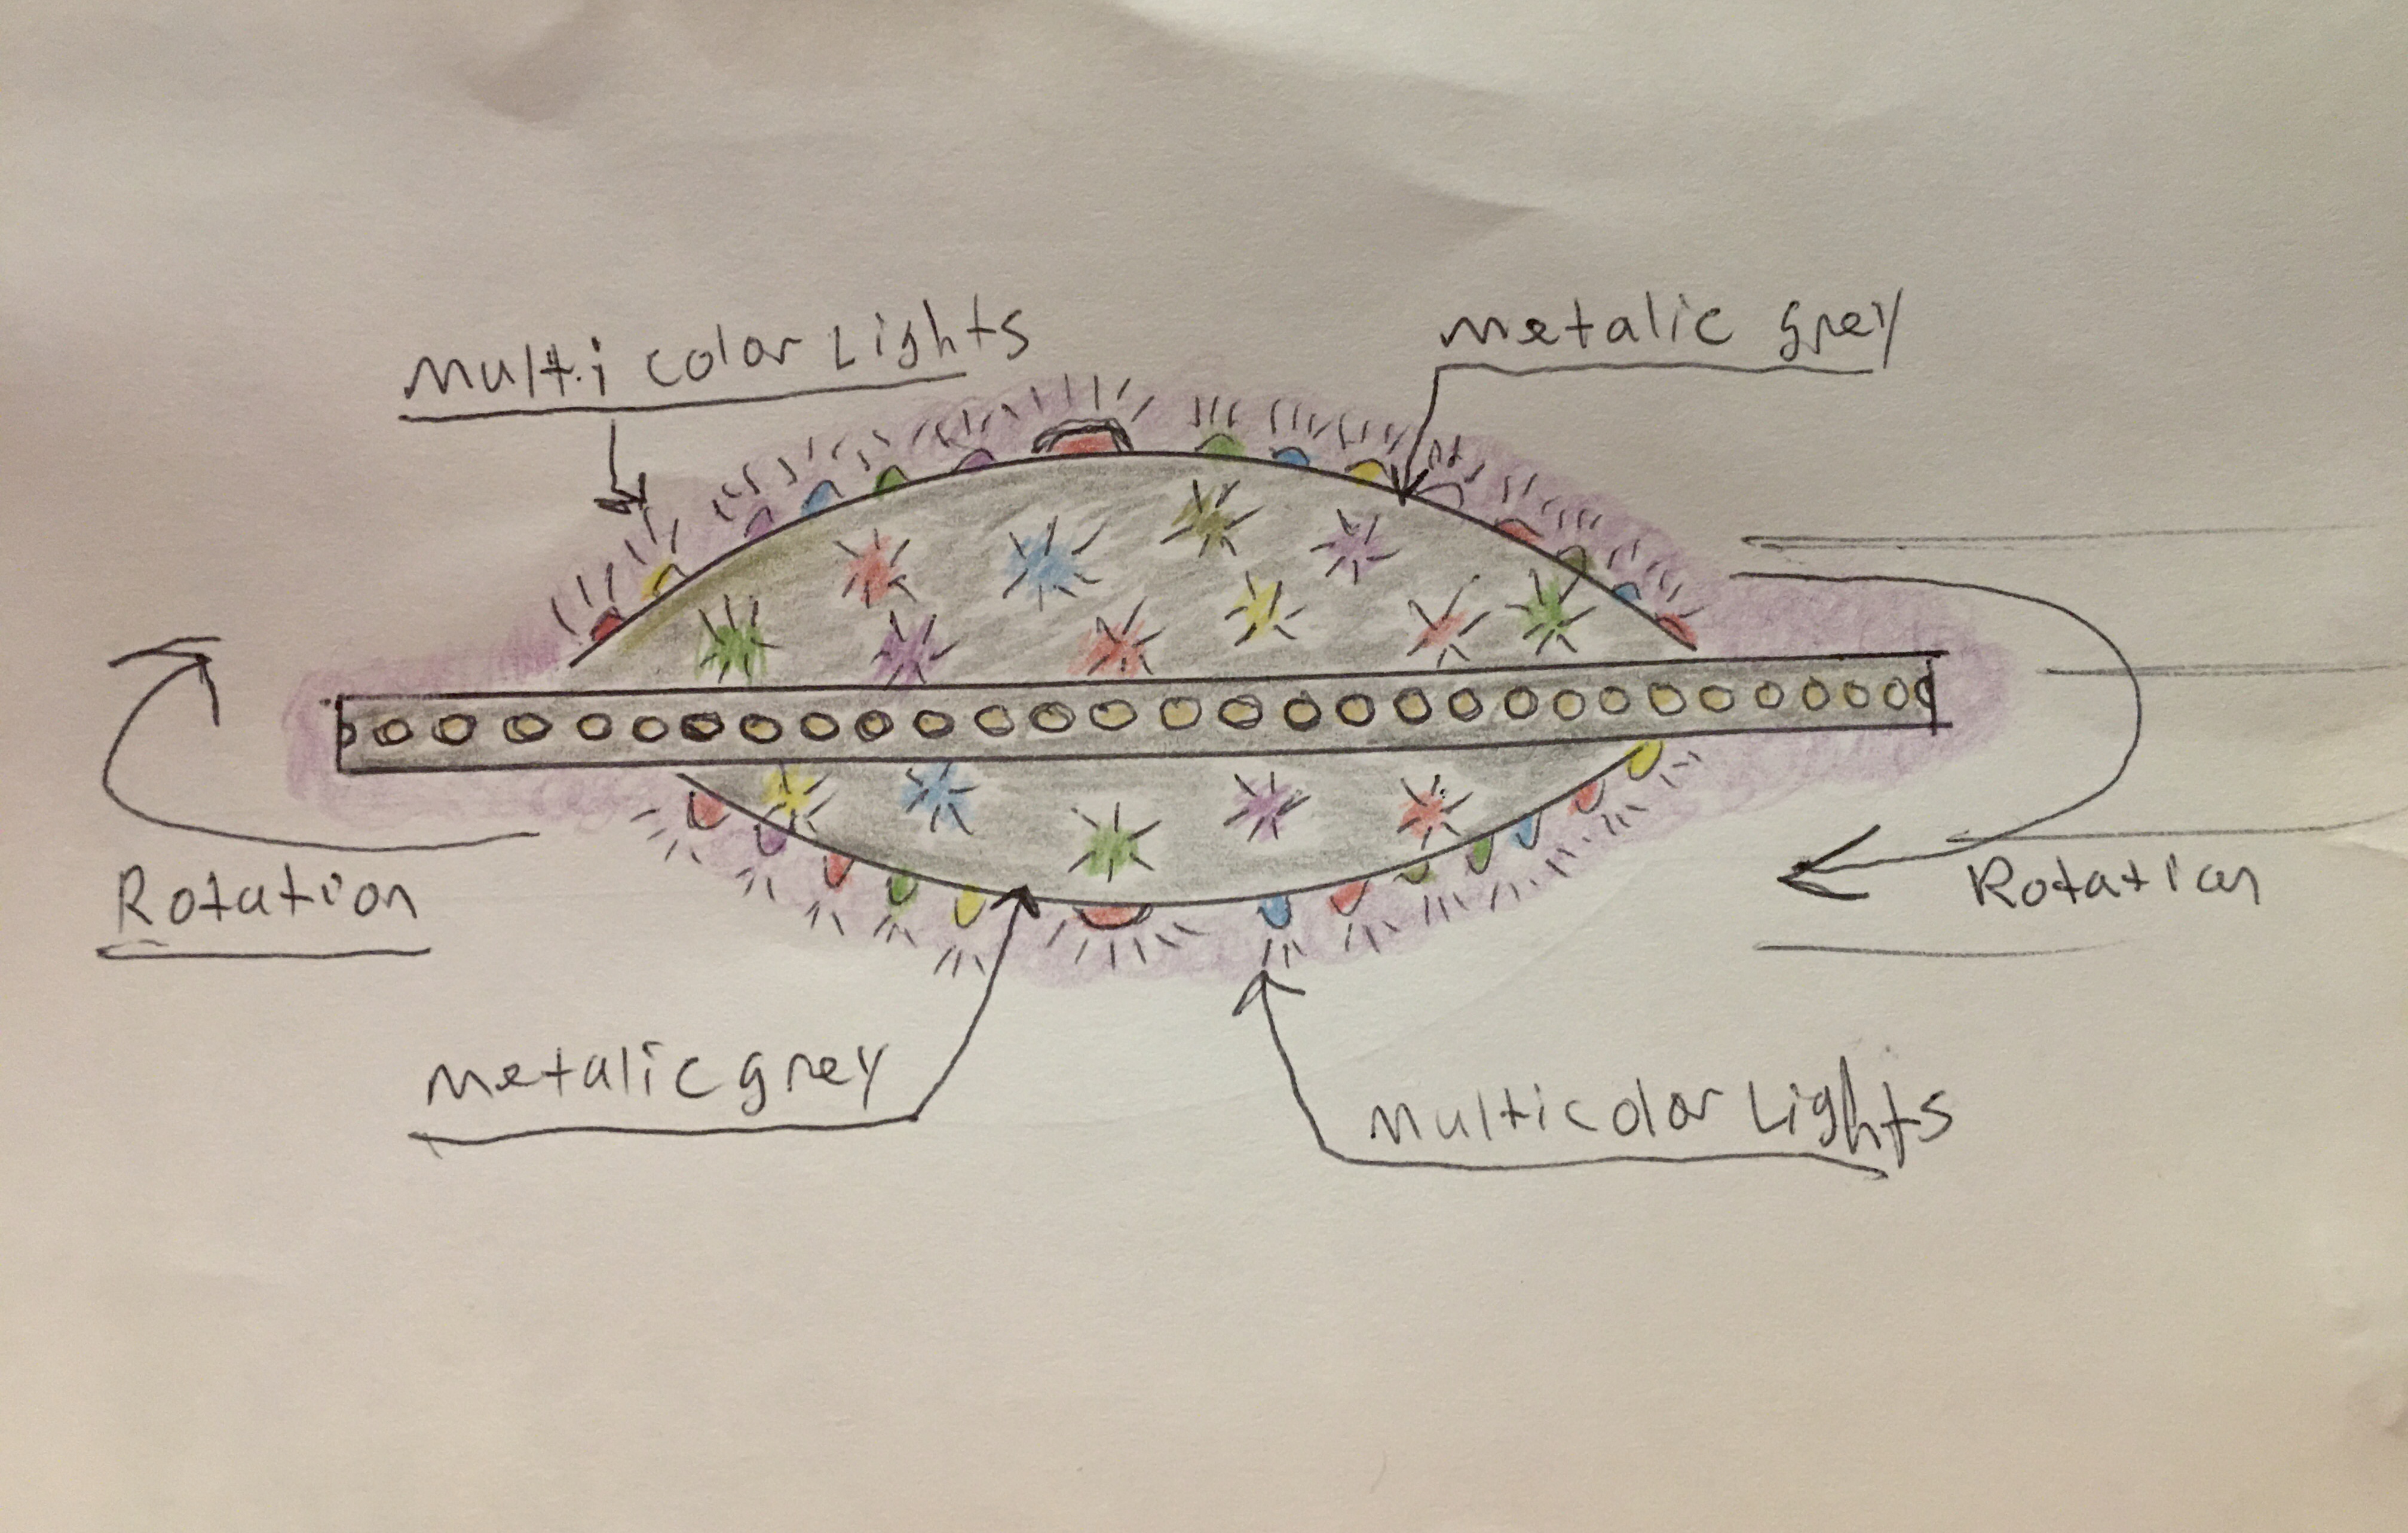 Multi color Lights
metalic grey
Rotation
Rotation
metalic grey
Multicolor Lights